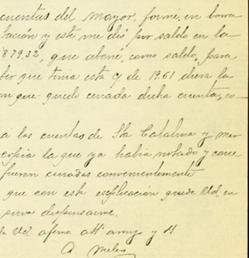 cuentas del mayor, formé, en borra
lación y este me dió por saldo en la
87932, que aboné, como saldo, para
ber que tenia este y de 1961 diera la
on que quedó cerrada dicha cuenta, co-
a las cuentas de Sta Catalina y mer
copia la que ya habia notado y que
fueran cerradas convenientemente
que con esta esplicación quede Vd en
serva dispensarme.
de Vd afmo att amigo y